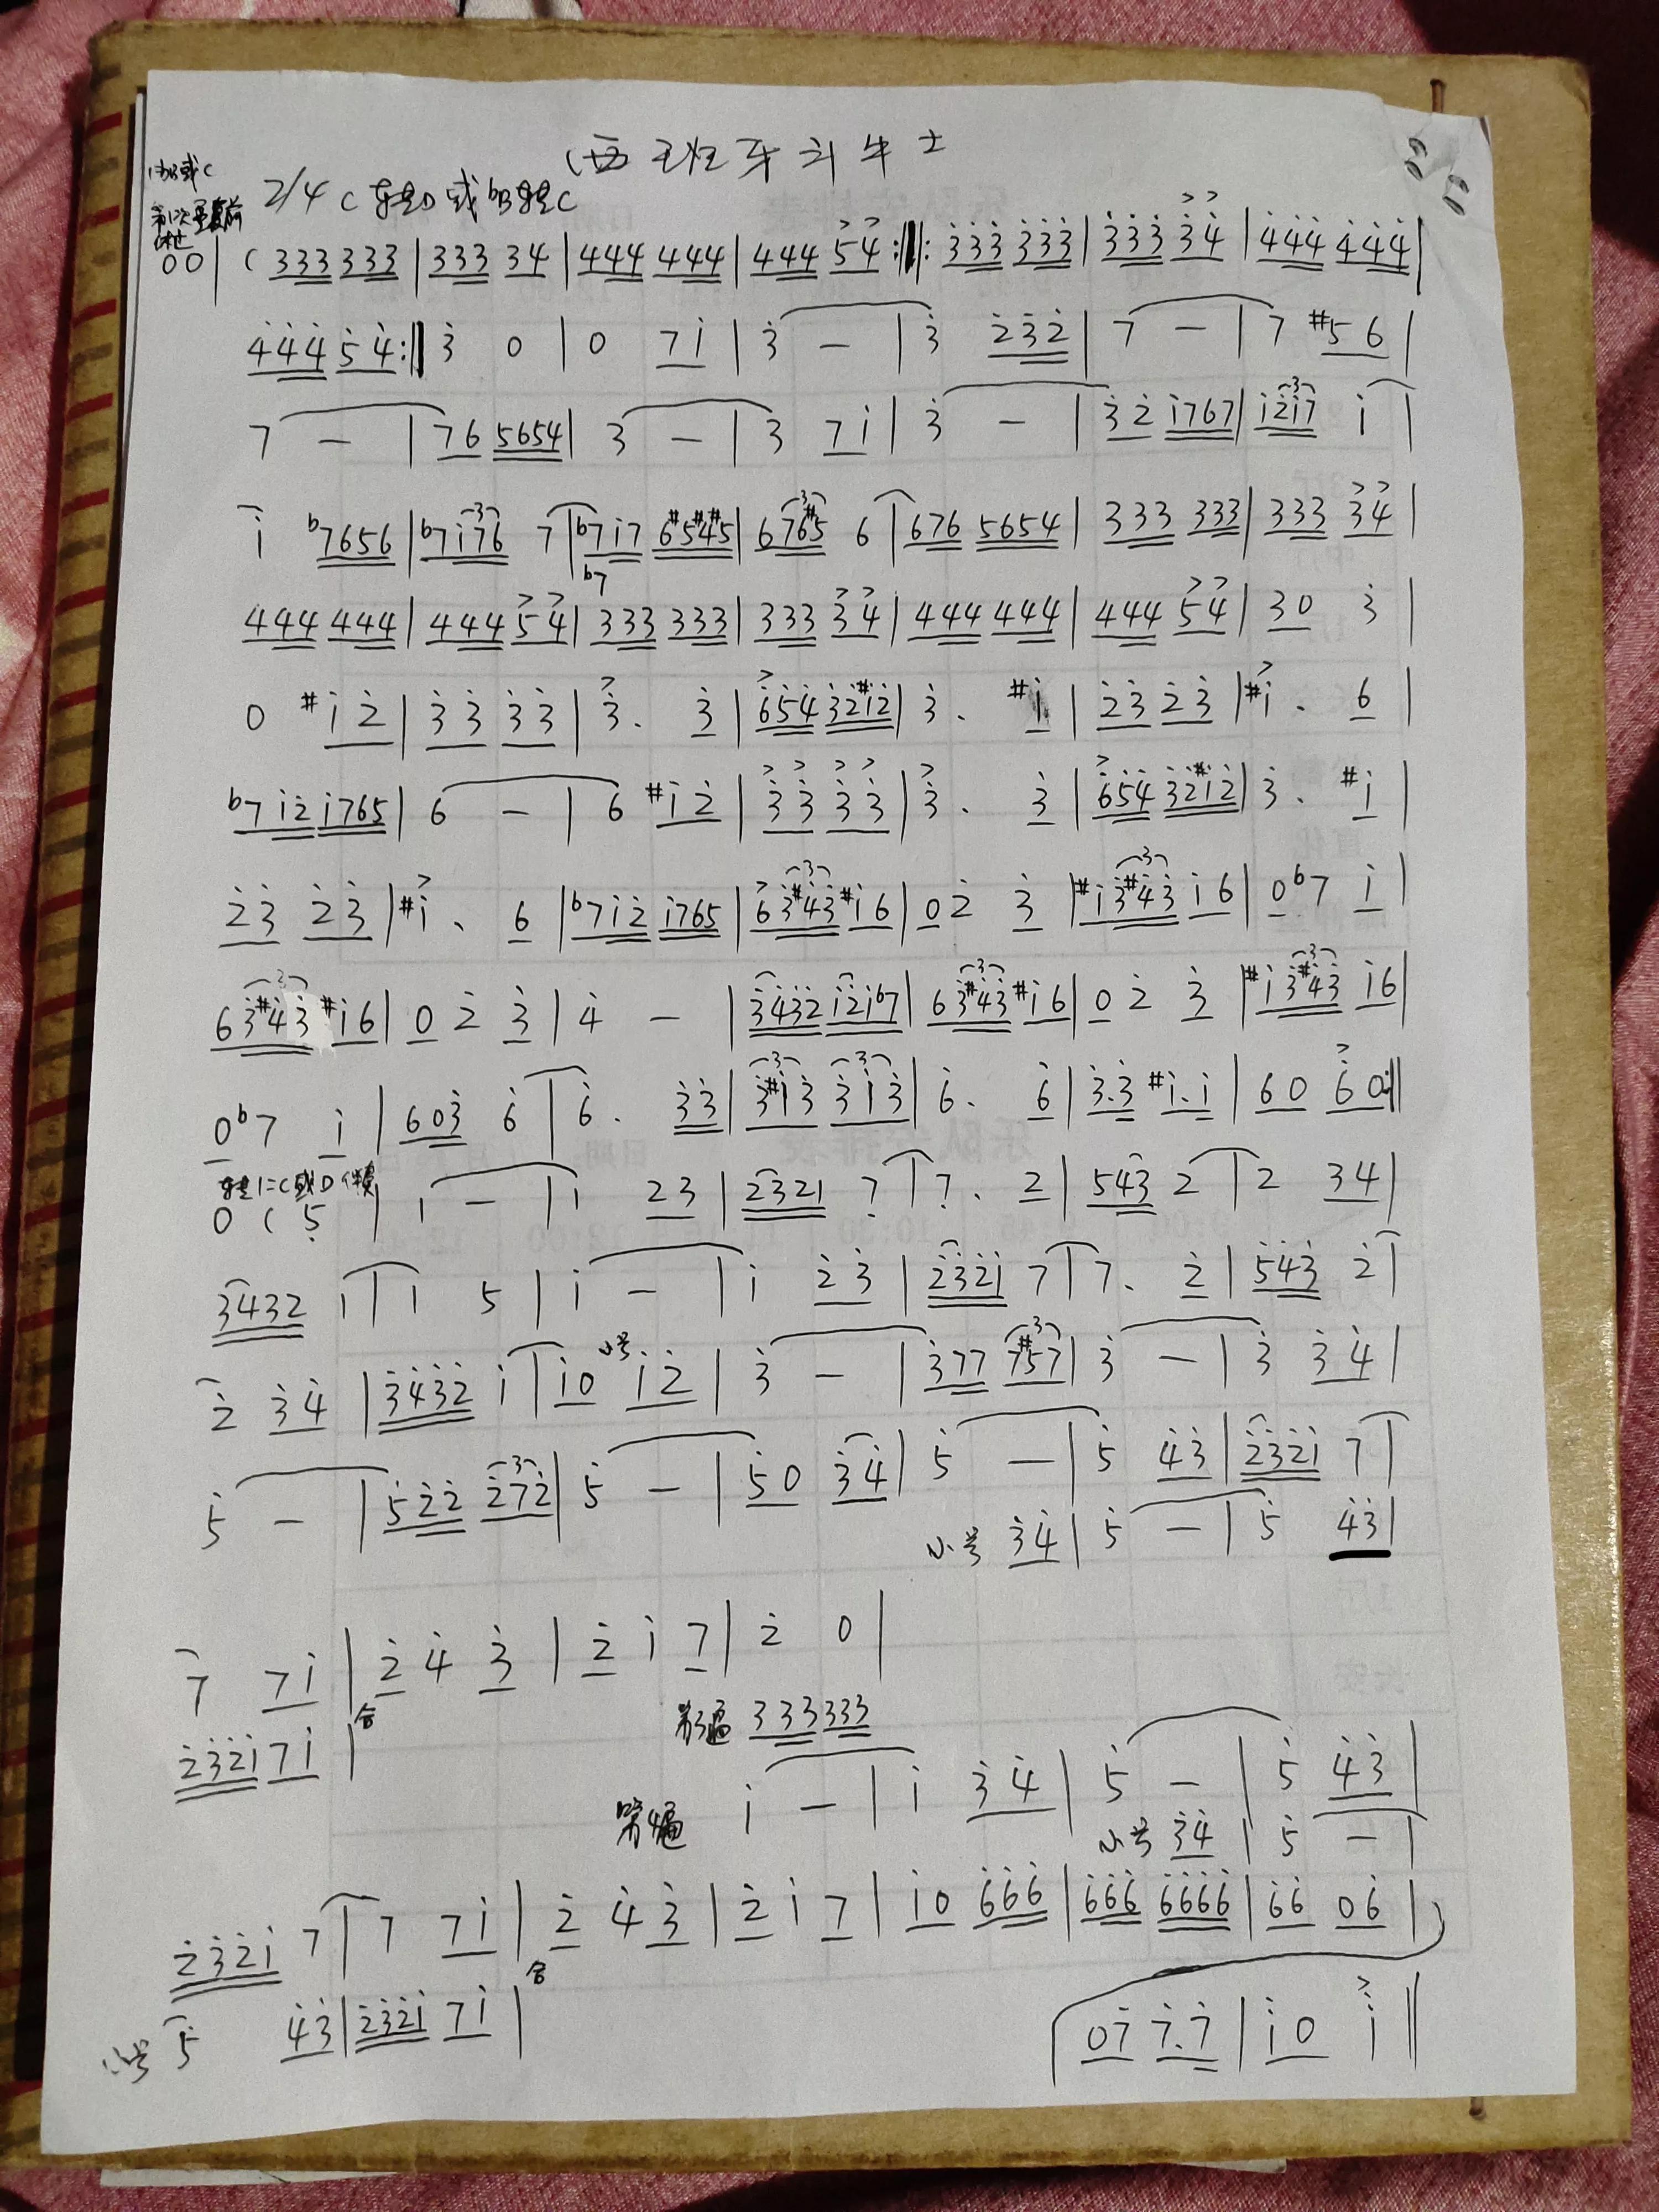 西班牙斗牛士
2/4 C转D或bB转C
00 | ( 333 333 | 333 34 | 444 444 | 444 54 :||: 3̇3̇3̇ 3̇3̇3̇ | 3̇3̇3̇ 3̇4̇ | 4̇4̇4̇ 4̇4̇4̇ |
4̇4̇4̇ 5̇4̇ :|| 3̇ 0 | 0 7i̇ | 3̇ — | 3̇ 2̇3̇2̇ | 7 — | 7 #56 |
7 — | 76 5654 | 3 — | 3 7i̇ | 3̇ — | 3̇2̇ i̇767 | i̇2̇i̇7 i̇ |
i̇ b7656 | b7i̇76 7 | b7i̇7 6#5#4#5 | 676#5 6 | 676 5654 | 333 333 | 333 34 |
b7
444 444 | 444 54 | 333 333 | 333 34 | 444 444 | 444 54 | 30 3 |
0 #i̇2̇ | 3̇3̇ 3̇3̇ | 3̇. 3̇ | 6̇5̇4̇ 3̇2̇#i̇2̇ | 3̇. #i̇ | 2̇3̇ 2̇3̇ | #i̇. 6 |
b7i̇2̇ i̇765 | 6 — | 6 #i̇2̇ | 3̇3̇ 3̇3̇ | 3̇. 3̇ | 6̇5̇4̇ 3̇2̇#i̇2̇ | 3̇. #i̇ |
2̇3̇ 2̇3̇ | #i̇. 6 | b7i̇2̇ i̇765 | 63̇#4̇3̇ #i̇6 | 0 2̇ 3̇ | #i̇3̇#4̇3̇ i̇6 | 0 b7 i̇ |
63̇#4̇3̇ #i̇6 | 0 2̇ 3̇ | 4̇ — | 3̇4̇3̇2̇ i̇2̇i̇b7 | 63̇#4̇3̇ #i̇6 | 0 2̇ 3̇ | #i̇3̇#4̇3̇ i̇6 |
0 b7 i̇ | 603̇ 6̇ | 6̇. 3̇3̇ | 3̇#i̇3̇ 3̇i̇3̇ | 6̇. 6̇ | 3̇.3̇ #i̇.i̇ | 60 6̇0 :||
转1=C或D
0 ( 5̣ | 1 — | 1 23 | 2321 7̣ | 7̣. 2 | 543 2 | 2 34 |
3432 i̇ | i̇ 5 | i̇ — | i̇ 2̇3̇ | 2̇3̇2̇i̇ 7 | 7. 2̇ | 5̇4̇3̇ 2̇ |
2̇ 3̇4̇ | 3̇4̇3̇2̇ i̇ | i̇0 小号 i̇2̇ | 3̇ — | 3̇77 7#57 | 3̇ — | 3̇ 3̇4̇ |
5̇ — | 5̇2̇2̇ 2̇72̇ | 5̇ — | 5̇0 3̇4̇ | 5̇ — | 5̇ 4̇3̇ | 2̇3̇2̇i̇ 7 |
小号 3̇4̇ | 5̇ — | 5̇ 4̇3̇ |
7 7i̇ | 2̇ 4̇ 3̇ | 2̇ i̇ 7 | 2̇ 0 |
2̇3̇2̇i̇ 7i̇ | 合
333 333
i̇ — | i̇ 3̇4̇ | 5̇ — | 5̇ 4̇3̇ |
小号 3̇4̇ | 5̇ — |
2̇3̇2̇i̇ 7 | 7 7i̇ | 2̇ 4̇ 3̇ | 2̇ i̇ 7 | i̇0 6̇6̇6̇ | 6̇6̇6̇ 6̇6̇6̇6̇ | 6̇6̇ 06̇ |
小号 5̇ 4̇3̇ | 2̇3̇2̇i̇ 7i̇ | 合
07̇ 7̇.7̇ | i̇0 i̇ ||